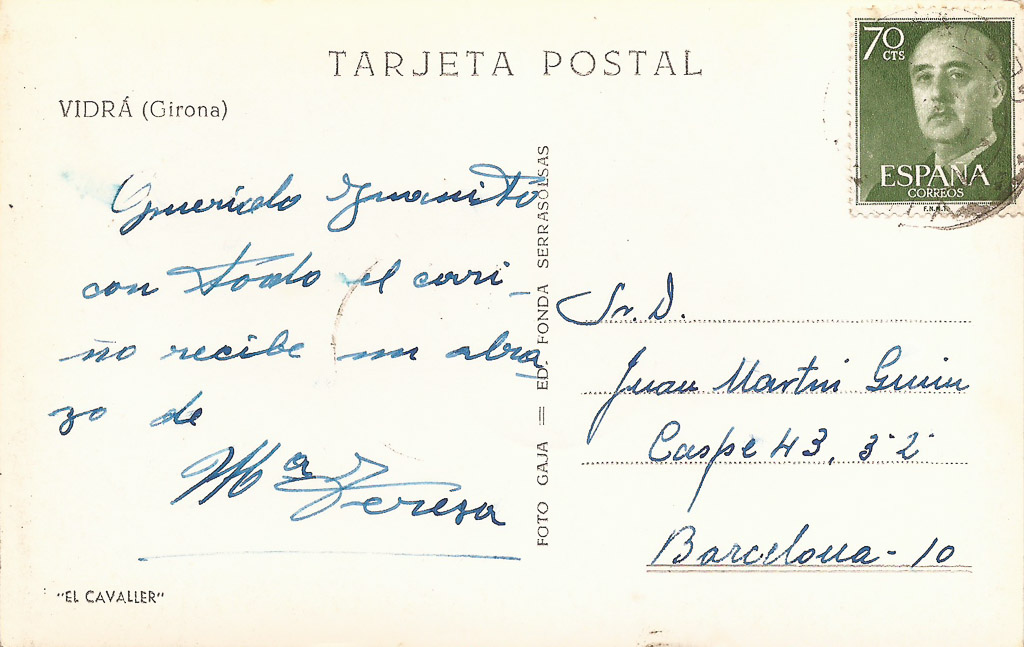 TARJETA POSTAL
VIDRÁ (Girona)
Querido Juanito
con todo el cari-
ño recibe un abra-
zo de
Mª Teresa
"EL CAVALLER"
FOTO GAJA = ED. FONDA SERRASOLSAS
70
CTS
ESPAÑA
CORREOS
F.N.M.T.
Sr. D.
Juan Martin Guiu
Caspe 43, 3º 2ª
Barcelona - 10